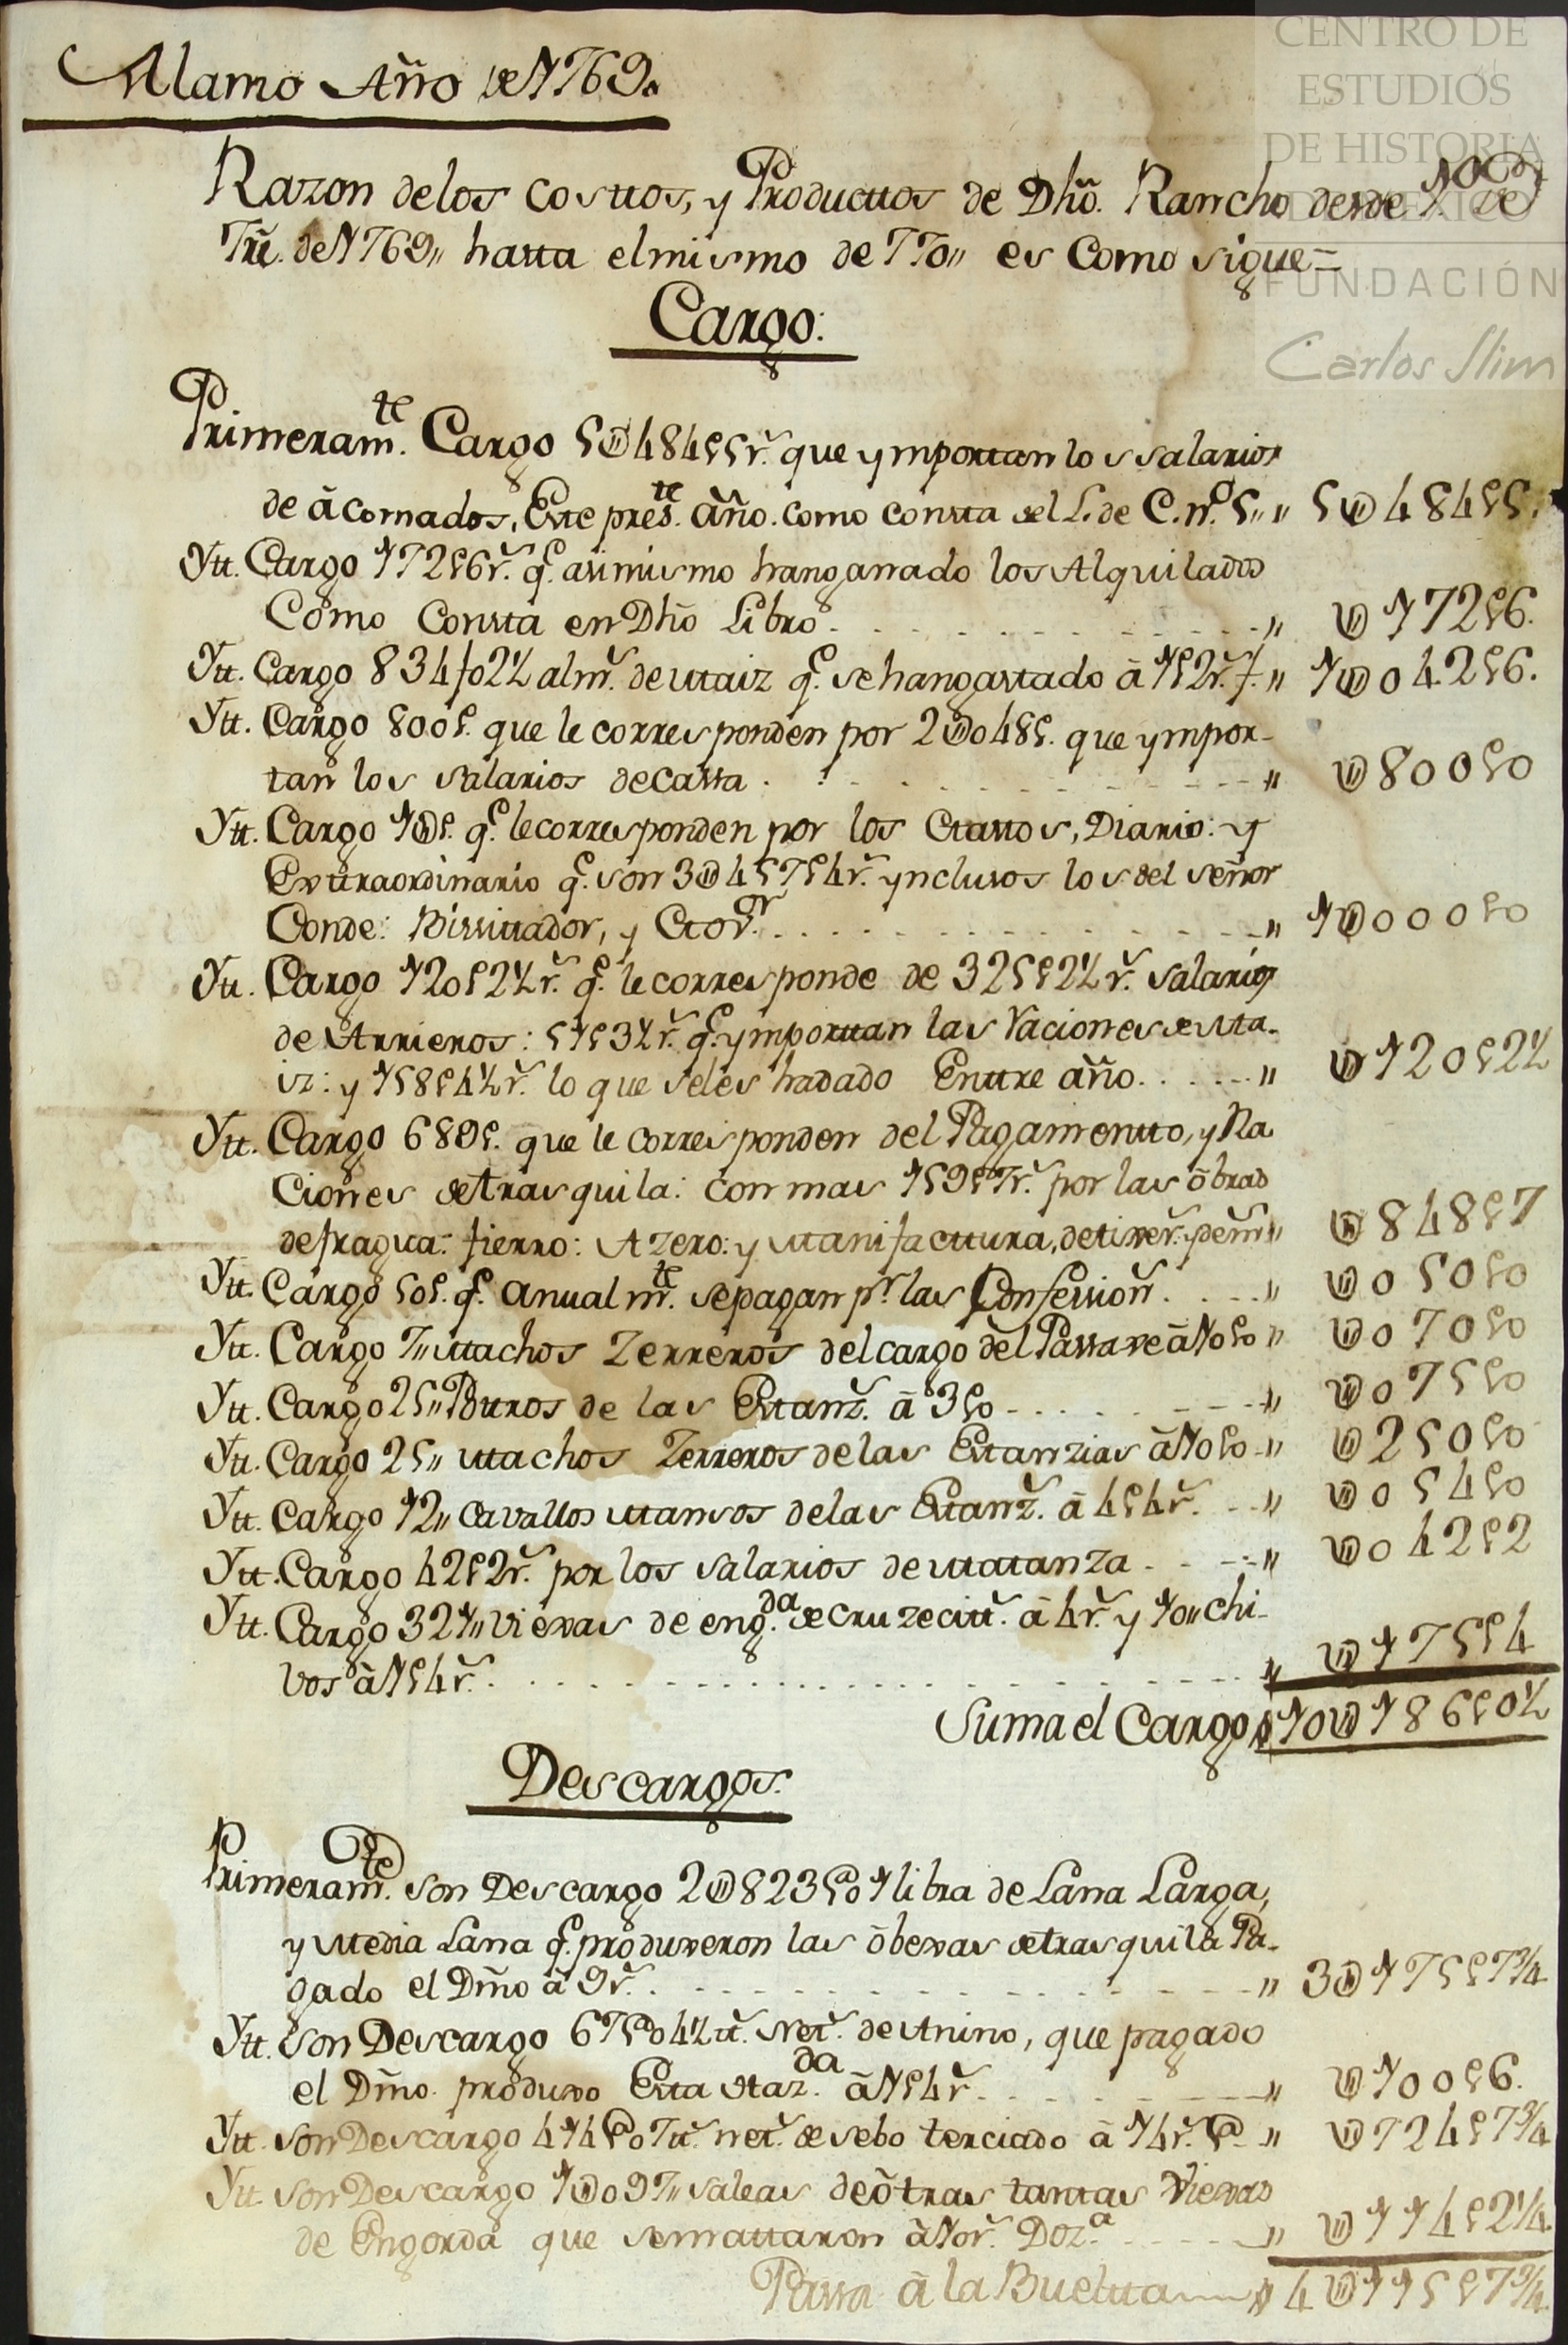 CENTRO DE
ESTUDIOS
DE HISTORIA
DE MEXICO
FUNDACIÓN
Carlos Slim
Alamo Año de 1769.
Razon de los Costtos, y Producttos de Dhô. Rancho desde 1º de
hasta el mismo de 770,, es Como sigue=
Cargo:
Primeramte. Cargo 5U484p5r. que ymporttan los salarios
de âcomodados, Este preste. Año. como consta del L. de C. nº. 5,, ,, 5U484p5.
Ytt. Cargo 172p6r. q. asimismo han ganado los Alquilados
Como Consta en Dhô Libro. ,, U172p6.
Ytt. Cargo 834f02½ almr. de Maiz q. se han gastado â 1p2r. f. ,, 1U042p6.
Ytt. Cargo 800p. que le corresponden por 2U048p. que ympor-
tan los salarios de Cassa . ,, U800p0
Ytt. Cargo 1Up. q. le corresponden por los Gastos, Diario: y
Exttraordinario q. son 3U457p4r. ynclusos los del señor
Conde: Vissittador, y ,, 1U000p0
Ytt. Cargo 120p2½r. q. le corresponde de 325p2½r. salarios
de Arrieros: 51p3½r. q. ymporttan las Raciones de Ma-
iz: y 158p4½r. lo que se les ha dado Enttre año. ,, U120p2½
Ytt. Cargo 689p. que le corresponden del Pagamentto, y Ra
Ciones de trasquila: con mas 159p7r. por las ôbras
de fragua: fierro: Azero: y Manifacttura, de ,, U848p7
Ytt. Cargo 50p. q. Anualmte. se pagan pr. las Confession. ,, U050p0
Ytt. Cargo 7,, Machos Zerreros del cargo del Passaxe â 10p0 ,, U070p0
Ytt. Cargo 25,, Burros de las Estanz. â 3p0 ,, U075p0
Ytt. Cargo 25,, Machos Zerreros de las Estanzias â 10p0 ,, U250p0
Ytt. Cargo 12,, Cavallos Mansos de las Estanz. â 4p4r. ,, U054p0
Ytt. Cargo 42p2r. por los salarios de Matanza ,, U042p2
Ytt. Cargo 321,, Viexas de engda. de Cruzecitt. â 4r. y 10,, chi-
vos â 1p4r. ,, U175p4
Suma el Cargo 10U186p0½
Descargos.
Primeramte. son Descargo 2U823@o 1 libra de Lana Larga,
y Media Lana q. produxeron las ôbexas de trasquila Pa-
gado el Dmo â 9r. ,, 3U175p7¾
Ytt. son Descargo 67@o 4½ tt. net. de Anino, que pagado
el Dmo. produxo Esta Hazda. â 1p4r. ,, U100p6.
Ytt. son Descargo 414@o 7tt. net. de sebo terciado â 14r. @ ,, U724p7¾
Ytt. son Descargo 1U097,, saleas de ôtras tantas Viexas
de Engorda que se mattaron â 10r. Doza. ,, U114p2¼
Passa â la Buelta 4U115p7¾